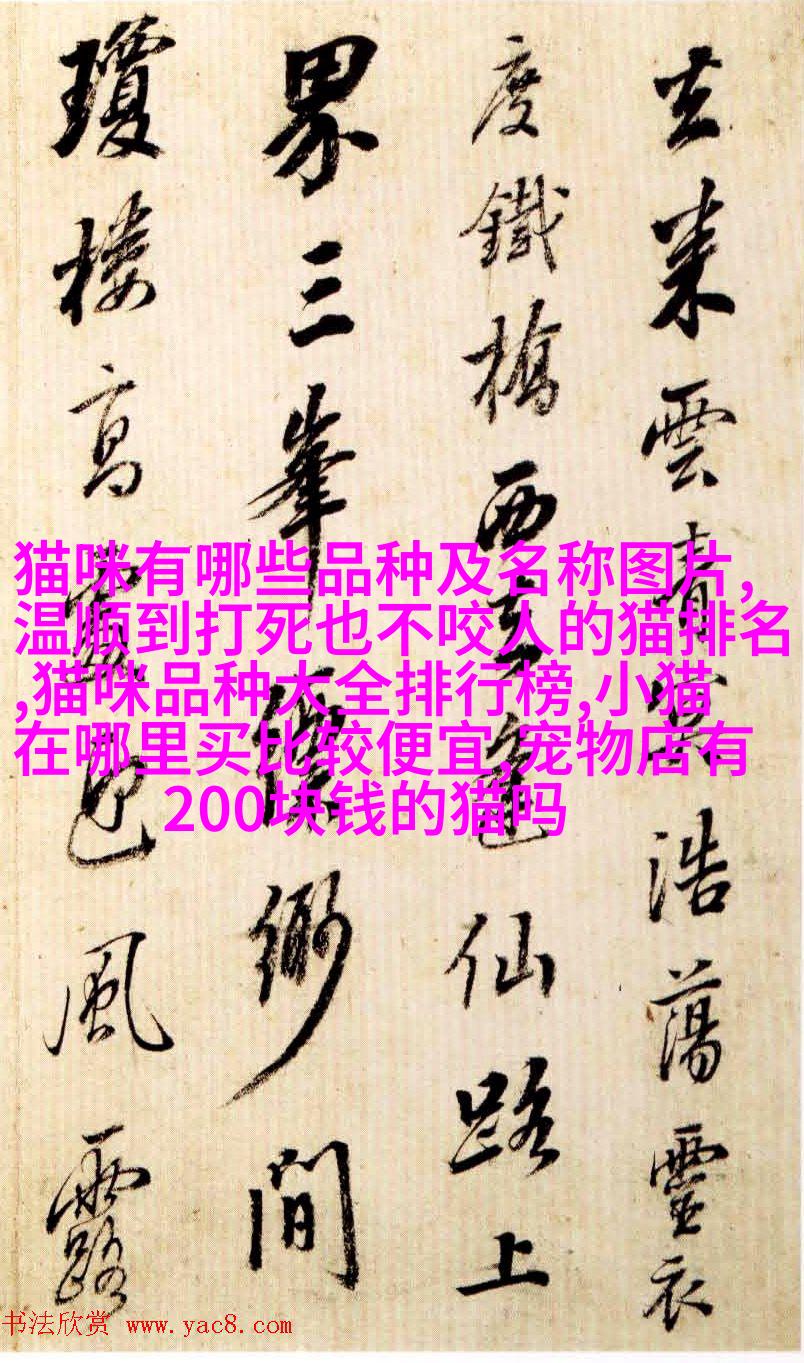 雲浩蕩靈衣
度鐵橋西仙路上
界三峯縹緲間
瓊樓高處迥風露
猫咪有哪些品种及名称图片,
温顺到打死也不咬人的猫排名
,猫咪品种大全排行榜,小猫
在哪里买比较便宜,宠物店有
200块钱的猫吗
书法欣赏 www.yac8.com